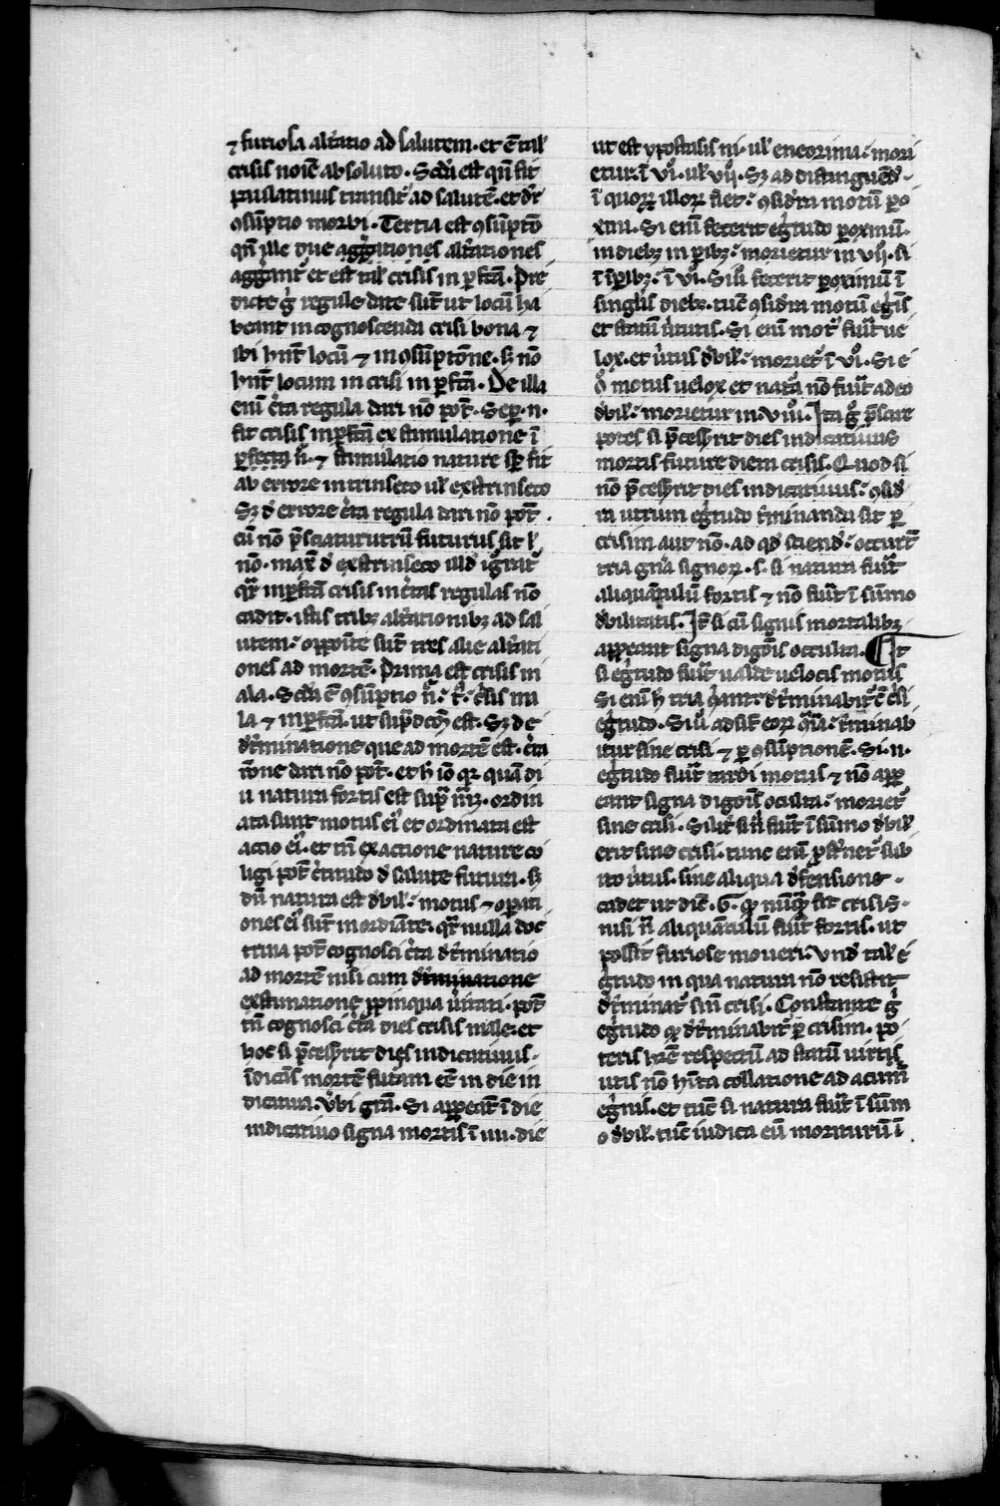 ⁊ furiosa alt̾atio ad salutem · et ē tal̾
crisis noīe absoluto · Scd̾a est qn̄ fit
paulatinus transit᷒ ad salutē · et dr̄
ꝯsūptio morbi · Tertia est ꝯsūpto᷒
qn̄ ille due aggͥgationes alt̾ationes
aggͥgant᷒ et est tal̾ crisis inꝑfc̄a · Pre
dicte gͥ regule date sūt ut locū ha
beant in cognoscenda crisi bona ⁊
ibi hn̄t locū ⁊ in ꝯsūptōne · sꝫ nō
hn̄t locum in crisi inꝑfc̄a · De illa
enī c̄ta regula dari nō pōt · Seꝑ · n ·
fit crisis inꝑfc̄a ex stimulatione ī
ꝑfecta n̄ · ⁊ stimulatio nature sꝑ fit
ab errore intrinseco ul̾ exstrinseco
Sꝫ d̾ errore c̄ta regula dari nō pōt ·
cū nō p̄sciatur utrū futurus sit ł
nō · max̄ d̾ exstrinseco illd̾ ignrat᷒
qr̄ inꝑfc̄a crisis in c̄tas regulas nō
cadit · istis tribꝫ alt̾ationibꝫ ad sal
utem · opposite sūt tres alie alt̾ati
ones ad mortē · Prima est crisis m
ala · Scd̾a ē ꝯsūptio n̄ · t̾ · c̄sis ma
la ⁊ inꝑfc̄a · ut sup̄dcm̄ est · Sꝫ de
dt̾minatione que ad mortē est · c̄ta
rōne dari nō pōt · et h̄ iō qꝛ quādi
u natura fortis est sup̄ · ordin
ata sunt motus ei᷒ et ordinata est
actio ei᷒ · et tn̄ ex actione nature co
ligi pōt c̄titudo d̾ salute futura · sꝫ
dū natura est d̾bil᷒ · motus ⁊ oꝑati
ones ei᷒ sūt inordiāte · qr̄ nulla doc
trina pōt cognosci c̄ta dt̾minatio
ad mortē nisi cum dt̾minatione
exstimatione ꝓpinqua u̾itati · pōt
tn̄ cognosci c̄ta dies crisis male · et
hoc si p̄cesserit dies indicatiuus ·
īdicās mortē futām eē in die in
dicatiua · Ubi grā · Si appeāt ī die
indicatiuo signa mortis ī iiii · die
ut est ypostasis ni · ul̾ eneorima · mori
etur ī vi᷒ · ul̾ vij᷒ · Sꝫ ad distinguend̾ ·
ī quoꝝ illoꝝ fiet · ꝯsid̾ra motū ꝑo
xmi · Si enī fecerit egͥtudo ꝑoxmū ·
in diebꝫ inꝑibꝫ · morietur in vij · si
ī ꝑibꝫ · ī vi · Si u᷒ fecerit ꝑoxmū ī
singlis diebꝫ · tūc ꝯsid̾ra motū egͥs
et statū u̾tutis · Si enī mot᷒ fuit̾ ue
lox · et u̾tus d̾bil᷒ · moriet᷒ ī vi᷒ · Si e
o motus uelox et nat̾a nō fuit̾ adeo
d̾bil᷒ · morietur in viij · Ita gͥ p̄scire
potes si p̄cesserit dies indicatiuus
mortis future diem crisis · Quod si
nō p̄cesserit dies indicatiuus · ꝯsid̾
ra utrum egͥtudo t̾minanda sit ꝑ
crisim aut nō · ad qd̾ sciend̾ · occurrt̄
tria gn̄a signoꝝ · s · si natura fuit̾
aliquātulū fortis ⁊ nō fuit̾ ī sūmo
d̾bilitatis · It̄ si cū signis mortalibꝫ
appeant signa digōis occulta · Et
si egͥtudo fuit̾ ualde uelocis motus
Si enī h tria dt̾minabit᷒ ē c̄si
egͥtudo · Si u᷒ adsit eoꝝ t̾minab
itur sine crisi ⁊ ꝑ ꝯsūptionē · Si · n ·
egͥtudo fuit̾ tardi motus ⁊ nō app
eant signa digōis ocↄlta · moriet᷒
sine crisi · Silit̾ si n̄ fuit̾ ī sūmo d̾bil᷒
erit sine crisi · tunc enī ꝓst̾net᷒ sub
ito u̾tus · sine aliqua d̾fensione ·
cadet ut diē · G · qꝫ nūqꝫ fit crisis ·
nisi n̄ aliquātulū fuit̾ fortis · ut
possit furiose moueri · Und̾ tal᷒ e
gͥtudo in qua natura nō resistit
dt̾minat᷒ sin̄ crisi · Constante gͥ
egͥtudo qꝫ dt̾minabit᷒ ꝑ crisim · po
teris hr̄e respectū ad statū uirtis
utis nō hīta collatione ad acumē
egͥnis · et tūc si natura fuit̾ ī sūm
o d̾bil᷒ · tūc iudica eū moriturū ī